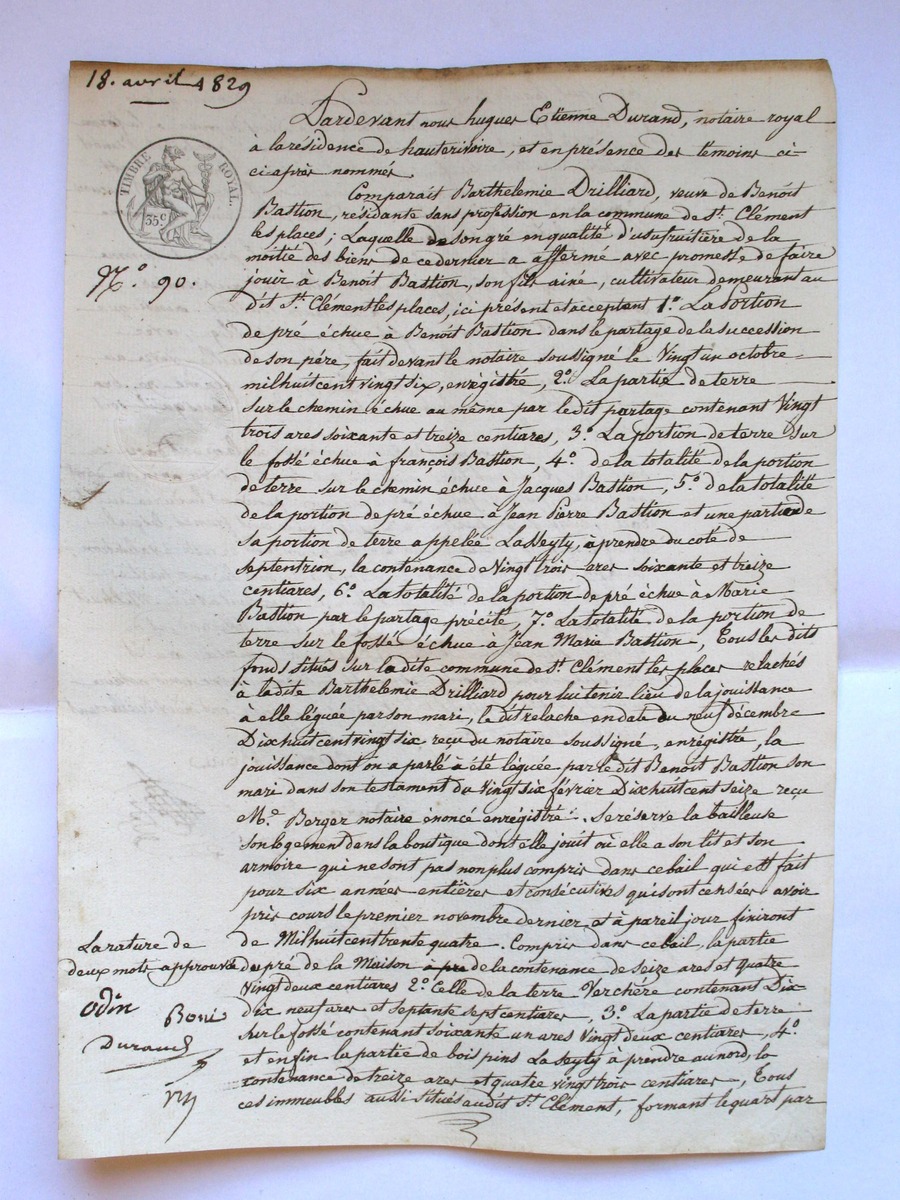 18. avril 1829
Pardevant nous hugues Etienne Durand, notaire royal
à la résidence de hauterivoire, et en présence des témoins ci-
ci-après nommés
TIMBRE ROYAL.
35 c
Comparait Barthelemie Drilliard, veuve de Benoit
Bastion, résidante sans profession en la commune de St. Clément
les places; Laquelle de son gré en qualité d'usufruitière de la
moitié des biens de ce dernier a affermé avec promesse de faire
N.º 90.
jouir à Benoit Bastion, son fils ainé, cultivateur demeurant au
dit St. Clément les places, ici présent et acceptant 1.º La portion
de pré échue à Benoit Bastion dans le partage de la succession
de son père, fait devant le notaire soussigné le Vingt un octobre
mil huit cent vingt six, enrégistré, 2.º La partie de terre
sur le chemin échue au même par le dit partage contenant Vingt
trois ares soixante et treize centiares, 3.º La portion de terre sur
le fossé échue à françois Bastion, 4.º de la totalité de la portion
de terre sur le chemin échue à Jacques Bastion, 5.º de la totalité
de la portion de pré échue à Jean Pierre Bastion et une partie de
sa portion de terre appelée La Seyty, à prendre du coté de
septentrion, la contenance de Vingt trois ares soixante et treize
centiares, 6.º La totalité de la portion de pré échue à Marie
Bastion par le partage précité, 7.º La totalité de la portion de
terre sur le fossé échue à Jean Marie Bastion, Tous les dits
fonds situés sur la dite commune de St. Clément les places relachés
à la dite Barthelemie Drilliard pour lui tenir lieu de la jouissance
à elle léguée par son mari, le dit relache en date du neuf décembre
Dix huit cent vingt six reçu du notaire soussigné, enrégistré, la
jouissance dont on a parlé à été léguée par le dit Benoit Bastion son
mari dans son testament du Vingt six février Dix huit cent seize reçu
M.e Berger notaire énoncé enregistré. Se réserve la bailleuse
son logement dans la boutique dont elle jouit où elle a son lit et son
armoire qui ne sont pas non plus compris dans ce bail qui est fait
pour six années entières et consécutives qui sont censées avoir
pris cours le premier novembre dernier et à pareil jour finiront
de Mil huit cent trente quatre. Compris dans ce bail, la partie
du pré de la Maison à pre de la contenance de seize ares et quatre
vingt deux centiares 2.º Celle de la terre Verchère contenant Dix
Dix neuf ares et septante sept centiares, 3.º La partie de terre
sur le fossé contenant soixante un ares Vingt deux centiares, 4.º
et enfin la partie de bois pins La Seyty à prendre au nord, la
contenance de treize ares et quatre vingt trois centiares, Tous
ces immeubles aussi situés au dit St. Clément, formant le quart par
La rature de
deux mots approuvée
Odin
Durand